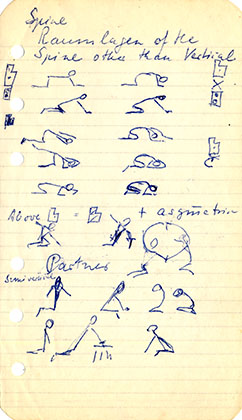 Spine
Raumlagen of the
Spine other than Vertical
Above = + asymetric
Partner